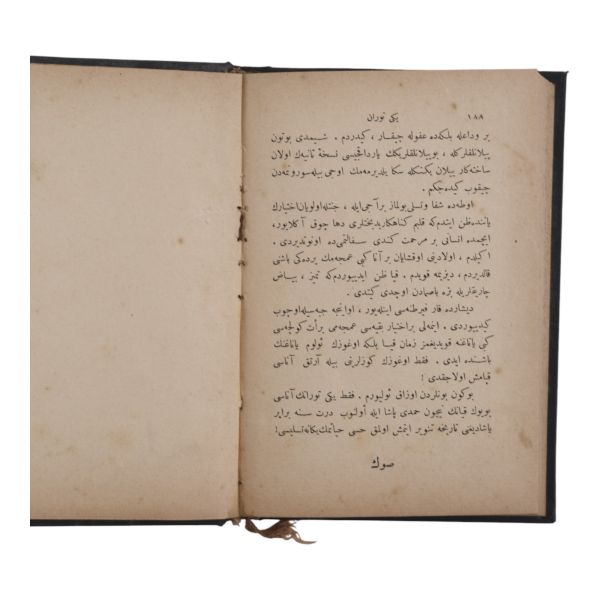 ١٨٨ يكى توران
بر وداعله بلكه‌ده عفوله چيقار ، كيدردم . شيمدى بوتون
ييلانلقلرڭله ، بو ييلانلقلريڭك ياراديجيسى نسخهٔ ثانيه‌ك اولان
ساخته‌كار ييلان يڭكله سكا بيلديرمه‌مك اوجى بيله سوروتمه‌دن
چيقوب كيده‌جكم .
اوطه‌ده شفا وتسلى بولماز برآجى ايله ، جنتله اولويان اختيارك
ياننده ظن ايتدم‌كه قلبم كناهكار بدبختلرى دها چوق آكلايور ،
ايچمده انسانى بر مرحمت كندى سفالتمى‌ده اونوتديردى .
اكيلدم ، اولادينى اوقشايان بر آنا كبى عمجه‌مك يرده‌كى باشنى
قالديردم ، ديزيمه قويدم . قپا ظن ايديبوردم‌كه تميز ، بياض
چارشفلريله يره باصمادن اوچدى كيتدى .
ديشارده قار فيرطنه‌سى ايكله‌يور ، اوانجه جبه‌سيله اوچوب
كيدييوردى . ايتمه‌لى بر اختيار بقيه‌سى عمجه‌مى برأت كولچه‌سى
كبى ياتاغنه قويديغمز زمان قيسا بلكه اوغوزك ئولوم ياتاغنك
باشنده ايدى . فقط اوغوزك كوزلرينى بيله آرتق آناسى
قپامش اولاجقدى !
بوكون بونلردن اوزاق ئوليورم . فقط يكى تورانك آناسى
بويوك قپانك نيچون حمدى پاشا ايله اولنوب درت سنه برابر
ياشاديغنى تاريخه تنوير ايتمش اولمق حسى حياتمك يكانه تسليسى !
صوك